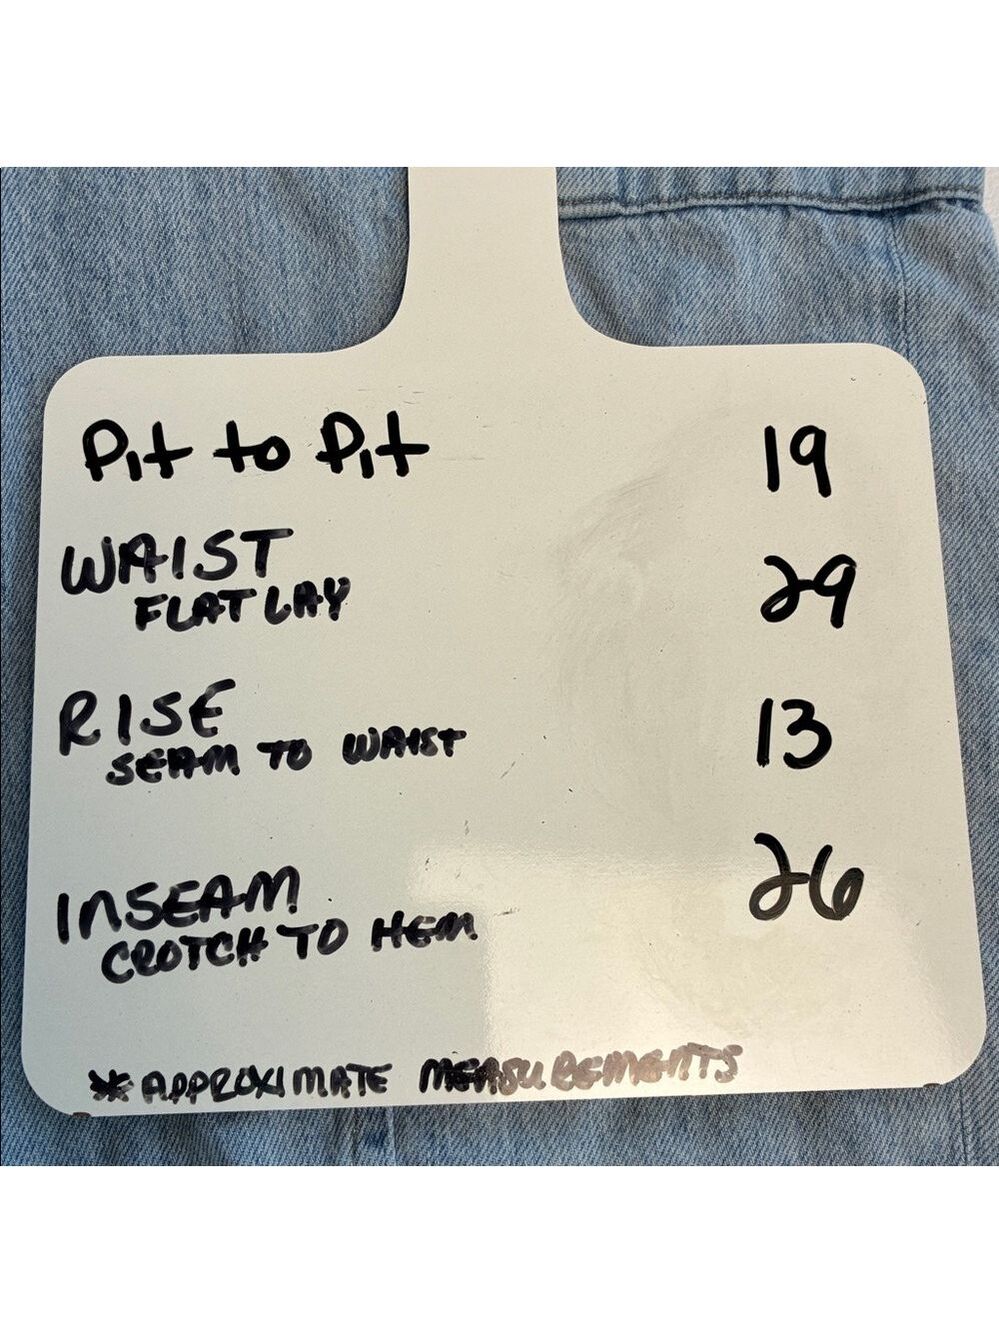 Pit to Pit 19
WAIST 29
FLAT LAY
RISE 13
SEAM TO WAIST
INSEAM 26
CROTCH TO HEM
* APPROXIMATE MEASUREMENTS